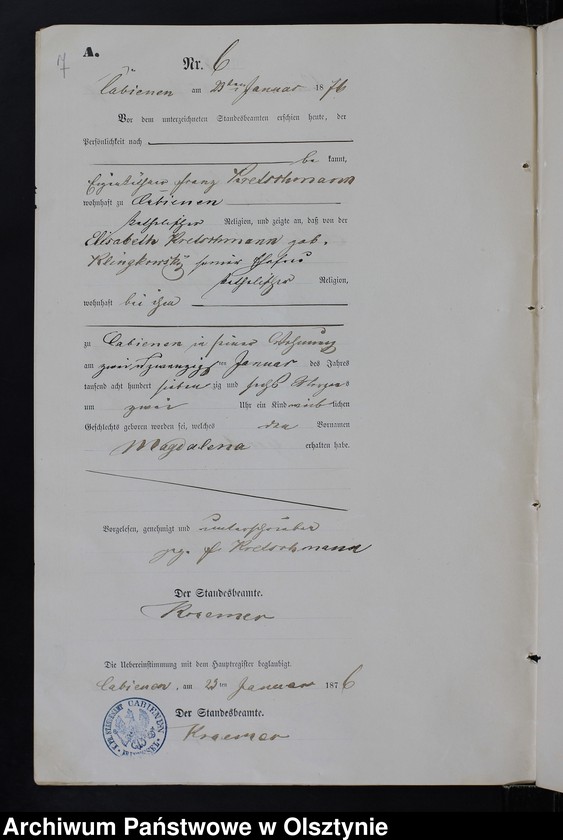 7
A.
Nr. 6
Cabienen am 23ten Januar 1876
Vor dem unterzeichneten Standesbeamten erschien heute, der
Persönlichkeit nach
be kannt,
Eigenkäthner Franz Kretschmann
wohnhaft zu Cabienen
katholischer Religion, und zeigte an, daß von der
Elisabeth Kretschmann geb.
Klingkowsky seiner Ehefrau
katholischer Religion,
wohnhaft bei ihm
zu Cabienen in seiner Wohnung
am zwei u zwanzigsten Januar des Jahres
tausend acht hundert siebenzig und sechs Morgens
um zwei Uhr ein Kind weiblichen
Geschlechts geboren worden sei, welches den Vornamen
Magdalena erhalten habe.
Vorgelesen, genehmigt und unterschrieben
gez. F Kretschmann
Der Standesbeamte.
Kraemer
Die Uebereinstimmung mit dem Hauptregister beglaubigt.
Cabienen, am 23ten Januar 1876
Der Standesbeamte.
Kraemer
CABIENEN
Archiwum Państwowe w Olsztynie